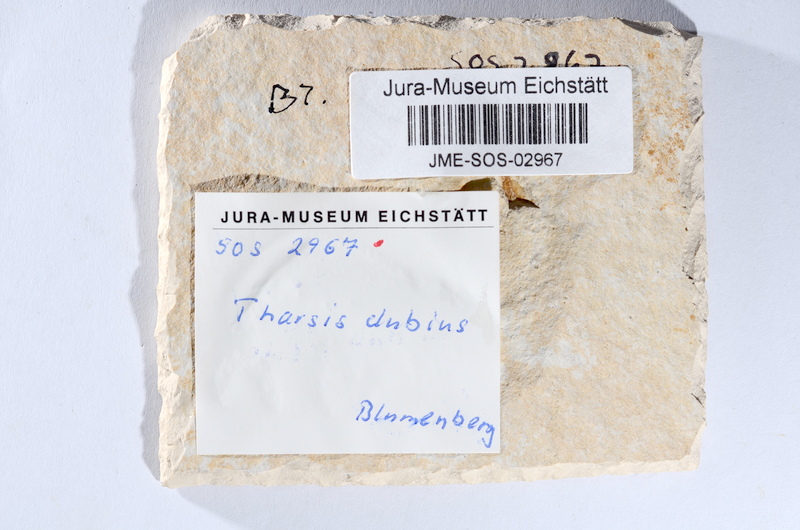 SOS 2967
B7.
Jura-Museum Eichstätt
JME-SOS-02967
JURA-MUSEUM EICHSTÄTT
SOS 2967
Tharsis dubius
Blumenberg